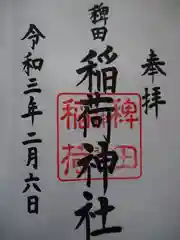 奉拝
稗田
稲荷神社
稗田
稲荷
令和三年二月六日